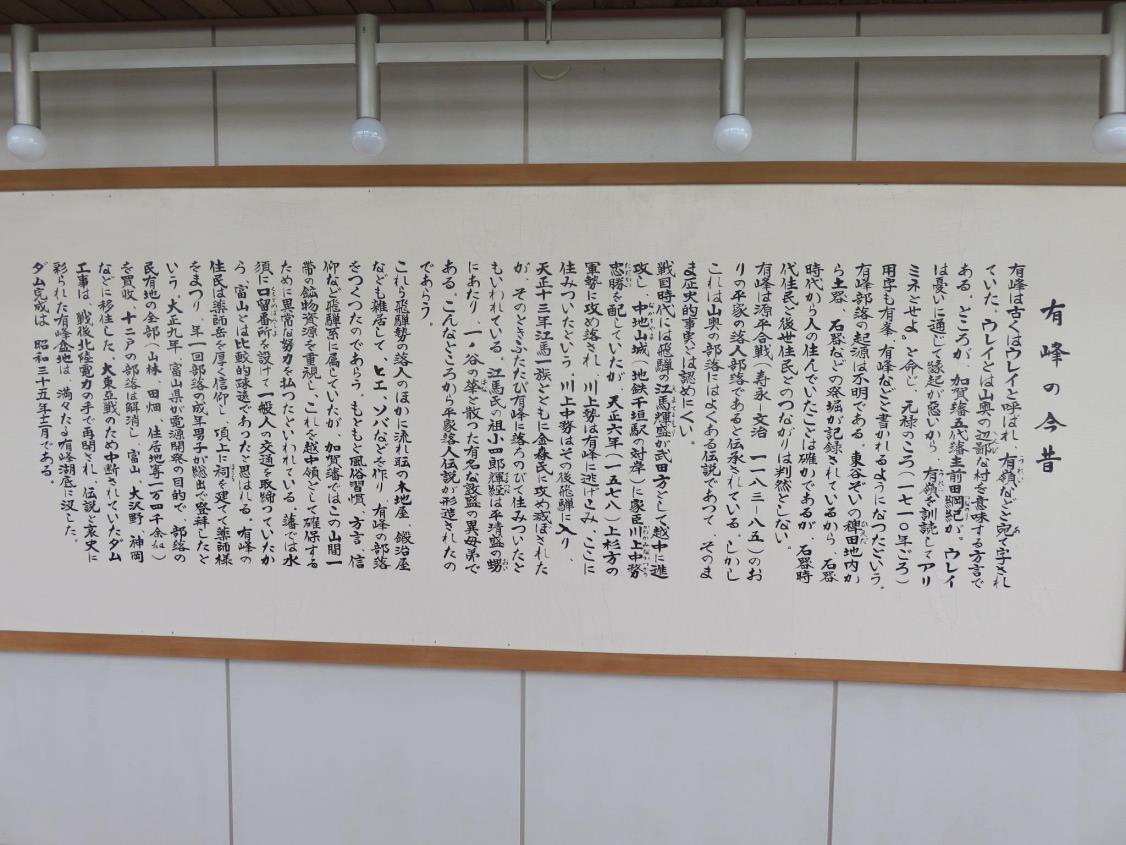 有峰の今昔
有峰は古くはウレイと呼ばれ、有嶺などと宛て字され
ていた。ウレイとは山奥の辺鄙な村を意味する方言で
ある。ところが、加賀藩五代藩主前田綱紀が、ウレイ
は憂いに通じて縁起が悪いから、有嶺を訓読してアリ
ミネとせよ。と命じ、元禄のころ(一七一〇年ごろ)
用字も有峯、有峰などと書かれるようになつたという。
有峰部落の起源は不明である。東谷ぞいの稗田地内か
ら土器、石器などの発掘が記録されているから、石器
時代から人の住んでいたことは確かであるが、石器時
代住民と後世住民とのつながりは判然としない。
有峰は源平合戦(寿永―文治 一一八三―八五)のお
りの平家の落人部落であると伝承されている。しかし
これは山奥の部落にはよくある伝説であつて、そのま
ま歴史的事実とは認めにくい。
戦国時代には飛騨の江馬輝盛が武田方として越中に進
攻し 中地山城(地鉄千垣駅の対岸)に家臣川上中務
忠勝を配していたが、天正六年(一五七八)上杉方の
軍勢に攻め落され、川上勢は有峰に逃げこみ、ここに
住みついたという。川上中務はその後飛騨に入り、
天正十三年江馬一族とともに金森氏に攻め滅ぼされた
が、そのときふたたび有峰に落ちのびて住みついたと
もいわれている。江馬氏の祖小四郎輝経は平清盛の甥
にあたり、一ノ谷の華と散った有名な敦盛の異母弟で
ある。こんなところから平家落人伝説が形造されたの
であらう。
これら飛騨勢の落人のほかに流れ転の木地屋、鍛冶屋
なども雑居して、ヒエ、ソバなどを作り、有峰の部落
をつくつたのであらう もともと風俗習慣、方言、信
仰など飛騨系に属していたが、加賀藩ではこの山間一
帯の鉱物資源を重視し、これを越中領として確保する
ために異常な努力を払つたといわれている 藩では水
須に口留番所を設けて一般人の交通を取締つていたか
ら、富山とは比較的疎遠であつたと思はれる 有峰の
住民は薬師岳を厚く信仰し、頂上に祠を建てて薬師様
をまつり、年一回部落の成年男子が総出で登拝したと
いう。大正九年、富山県が電源開発の目的で、部落の
民有地の全部(山林、田畑、住居地等一万四千余)
を買収、十二戸の部落は解消し、富山、大沢野、神岡
などに移住した。大東亞戦のため中断されていたダム
工事は、戦後北陸電力の手で再開され、伝説と哀史に
彩られた有峰盆地は、満々たる有峰湖底に没した。
ダム完成は 昭和三十五年十二月である。